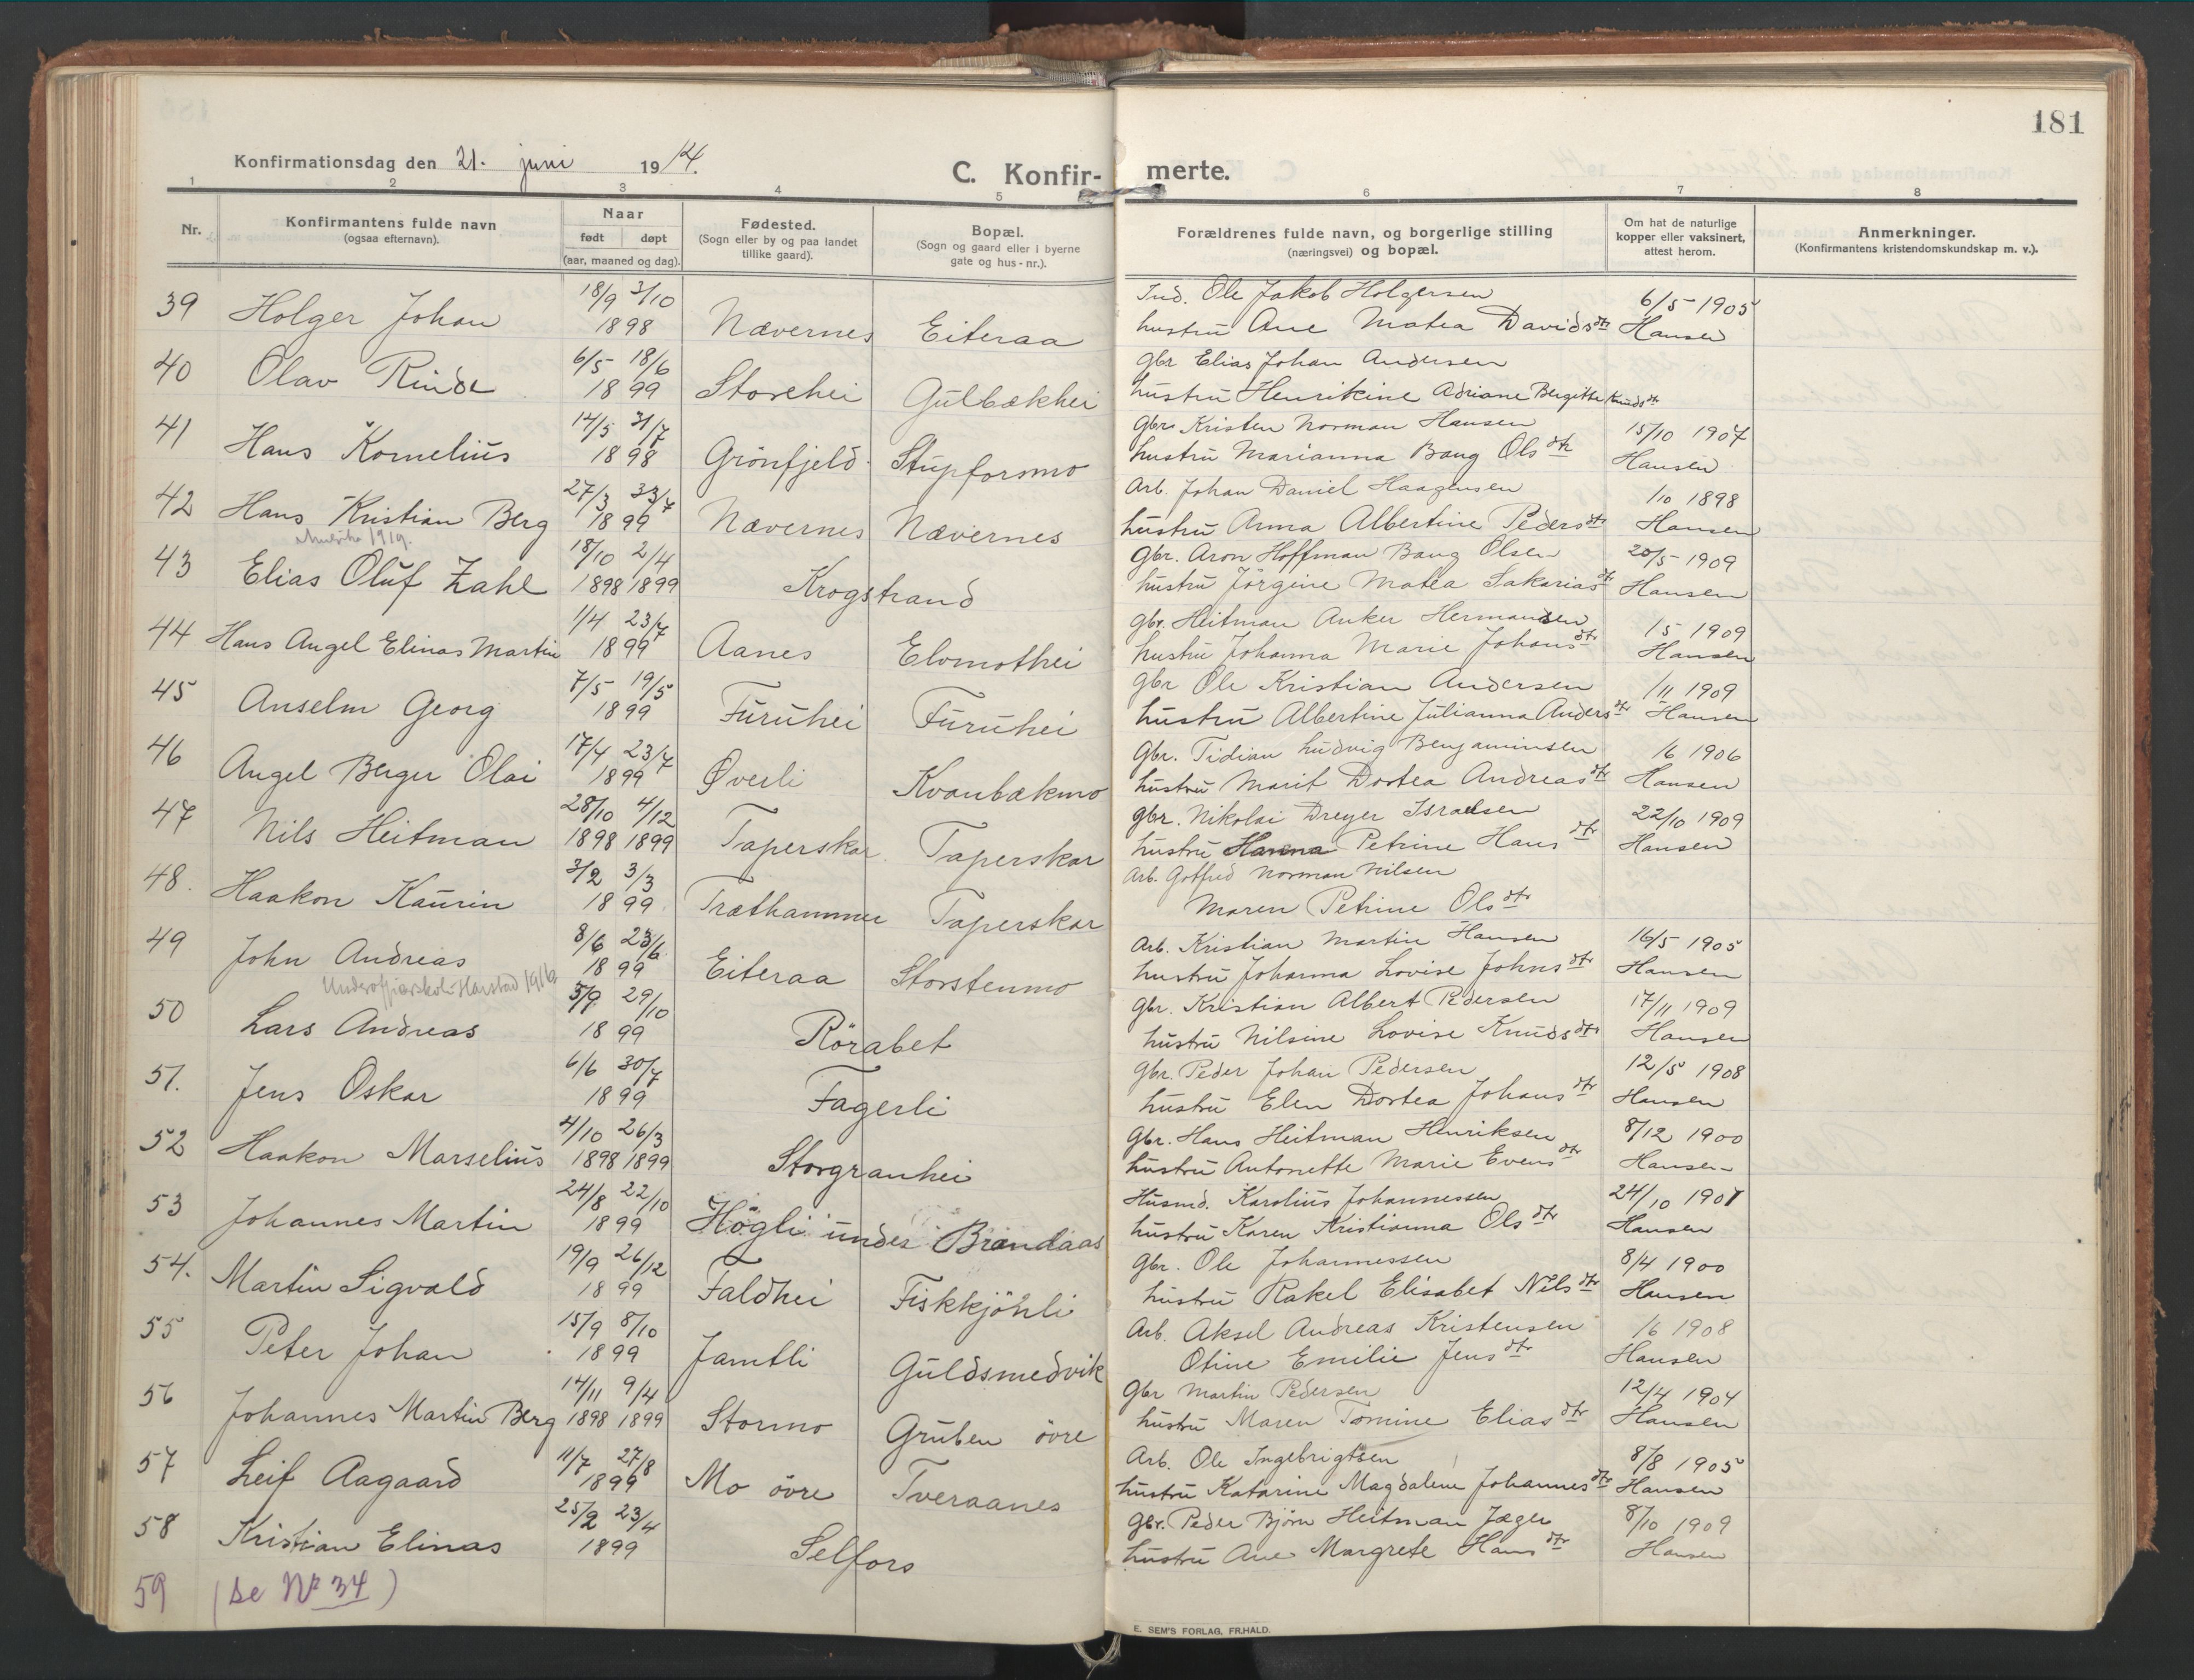 181
Konfirmationsdag den 21. juni 1914.
C. Konfirmerte.
1 2 3 4 5 6 7 8
Nr. Konfirmantens fulde navn (ogsaa efternavn). Naar født døpt (aar, maaned og dag). Fødested. (Sogn eller by og paa landet tillike gaard). Bopæl. (Sogn og gaard eller i byerne gate og hus-nr.). Forældrenes fulde navn, og borgerlige stilling (næringsvei) og bopæl. Om hat de naturlige kopper eller vaksinert, attest herom. Anmerkninger. (Konfirmantens kristendomskundskap m. v.).
39 Holger Johan 18/9 3/10 1898 Nævernes Eiteraa Ind. Ole Jakob Holgersen 6/5 1905
hustru Ane Matea Davidsdtr Hansen
40 Olav Rinde 6/5 18/6 1899 Storehei Gulbækhei gbr Elias Johan Andersen
hustru Henrikine Adriane Bergitte Knudsdtr
41 Hans Kornelius 14/5 31/7 1898 Grönfjeld Stupforsmo Gbr. Kristen Norman Hansen 15/10 1907
hustru Marianna Bang Olsdtr Hansen
42 Hans Kristian Berg 27/3 23/7 1899 Nævernes Nævernes Arb. Johan Daniel Haagensen 1/10 1898
hustru Anna Albertine Pedersdtr Hansen
1919.
43 Elias Oluf Zahl 18/10 2/4 1898 1899 Krogstrand Gbr. Aron Hoffman Bang Olsen 20/5 1909
hustru Jörgine Matea Sakariasdtr Hansen
44 Hans Angel Elinas Martin 1/4 23/7 1899 Aanes Elvmothei gbr. Heitman Anker Hermansen 1/5 1909
hustru Johanna Marie Johansdtr Hansen
45 Anselm Georg 7/5 19/5 1899 Furuhei Furuhei gbr Ole Kristian Andersen 1/11 1909
hustru Albertine Julianna Andersdtr Hansen
46 Angel Berger Olai 17/4 23/7 1899 Øverli Kvanbækmo Gbr. Tidian Ludvig Benjaminsen 1/6 1906
hustru Marit Dortea Andreasdtr Hansen
47 Nils Heitman 28/10 4/12 1898 1899 Taperskar Taperskar gbr. Nikolai Dreyer Israelsen 22/10 1909
hustru Hanna Petrine Hansdtr Hansen
48. Haakon Kaurin 3/2 3/3 1899 Træthammer Taperskar Arb. Gotfred Norman Nilsen
Maren Petrine Olsdtr
49 John Andreas 8/6 23/6 1899 Eiteraa Storstenmo Arb. Kristian Martin Hansen 16/5 1905
hustru Johanna Lovise Johnsdtr Hansen
Underofficerskole Harstad 1916
50 Lars Andreas 5/9 29/10 1899 Rörabet Gbr. Kristian Albert Pedersen 17/11 1909
hustru Nilsine Lovise Knudsdtr Hansen
51. Jens Oskar 6/6 30/7 1899 Fagerli Gbr. Peder Johan Pedersen 12/5 1908
hustru Elen Dortea Johansdtr Hansen
52 Haakon Marselius 4/10 26/3 1898 1899 Storgranhei Gbr. Hans Heitman Henriksen 8/12 1900
hustru Antonette Marie Evensdtr Hansen
53 Johannes Martin 24/8 22/10 1899 Högli under Brandaas Husmd. Karolius Johannessen 24/10 1907
hustru Karen Kristianna Olsdtr Hansen
54. Martin Sigvald 19/9 26/12 1899 Faldhei Fiskkjöhli gbr. Ole Johannessen 8/4 1900
hustru Rakel Elisabet Nilsdtr Hansen
55 Peter Johan 15/9 8/10 1899 Jamtli Guldsmedvik Arb. Aksel Andreas Kristensen 1/6 1908
Otine Emilie Jensdtr Hansen
56 Johannes Martin Berg 14/11 9/4 1898 1899 Stormo Gruben övre Gbr Martin Pedersen 12/4 1904
hustru Maren Tomine Eliasdtr Hansen
57 Leif Aagaard 11/7 27/8 1899 Mo övre Tveraanes Arb. Ole Ingebrigtsen 8/8 1905
hustru Katarine Magdalene Johannesdtr Hansen
58 Kristian Elinas 25/2 23/4 1899 Selfors Gbr. Peder Bjørn Heitman Jæger 8/10 1909
hustru Ane Margrete Hansdtr Hansen
59 (se No 34)
E. SEM'S FORLAG, FR.HALD.